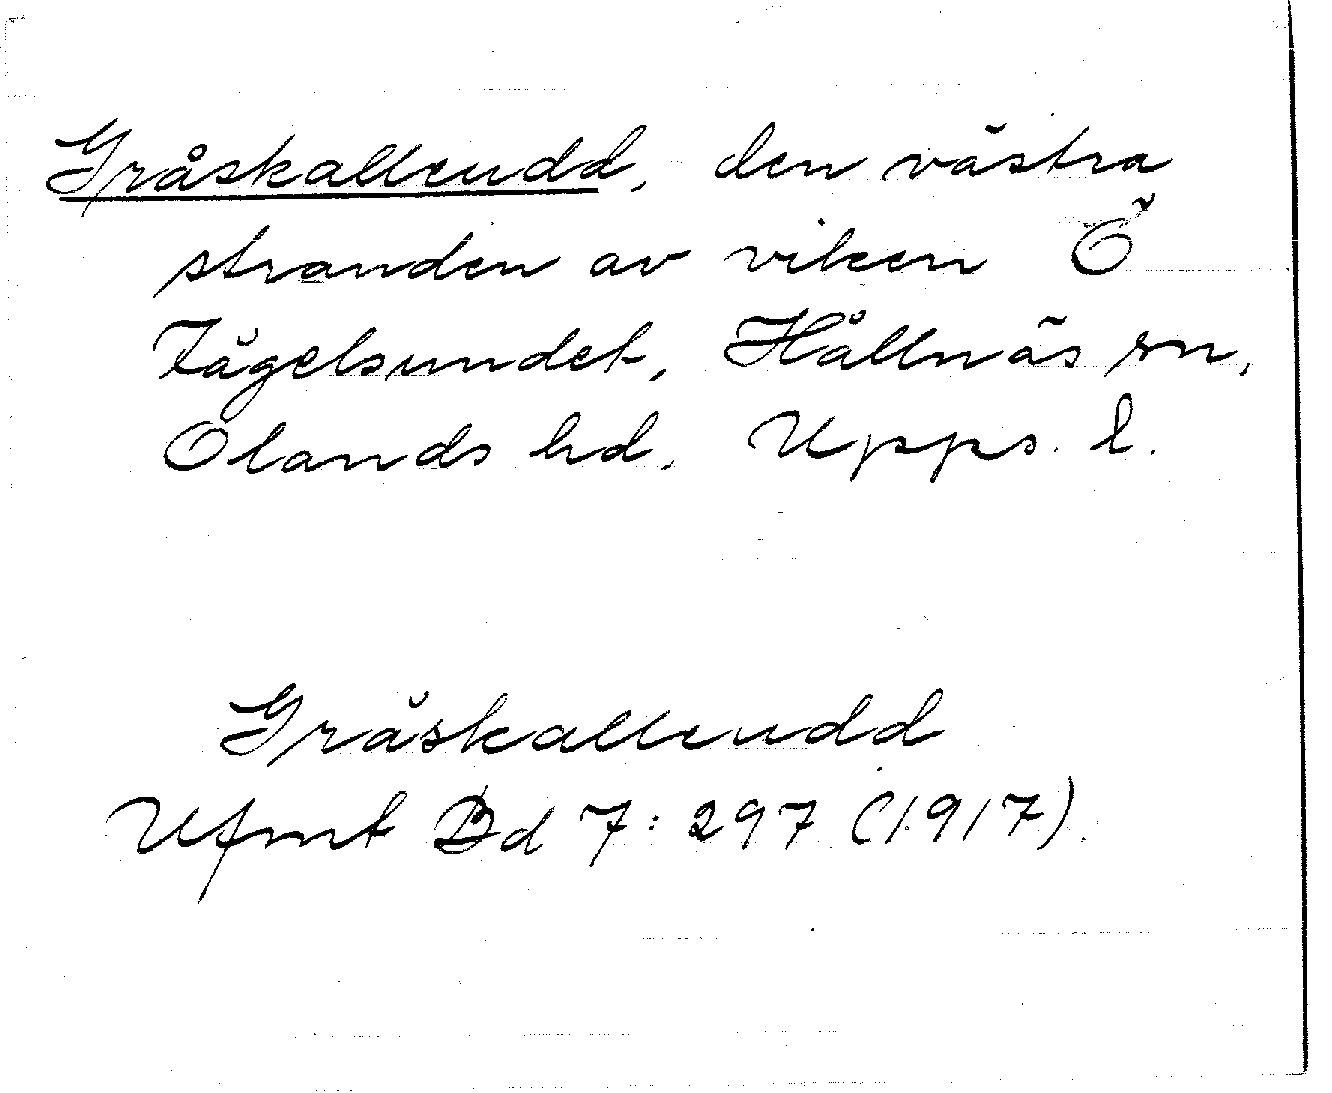 Gråskalleudd, den västra
stranden av viken Ö
Fågelsundet, Hållnäs sn,
Olands hd, Upps. l.
Gråskalleudd
Ufmt Bd 7: 297 (1917)